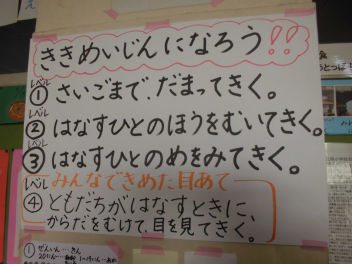 ききめいじんになろう!!
レベル
① さいごまで、だまってきく。
レベル
② はなすひとのほうをむいてきく。
レベル
③ はなすひとのめをみてきく。
レベル みんなできめた目あて
④ ともだちがはなすときに、
からだをむけて、目を見てきく。
① ぜんいん…きん